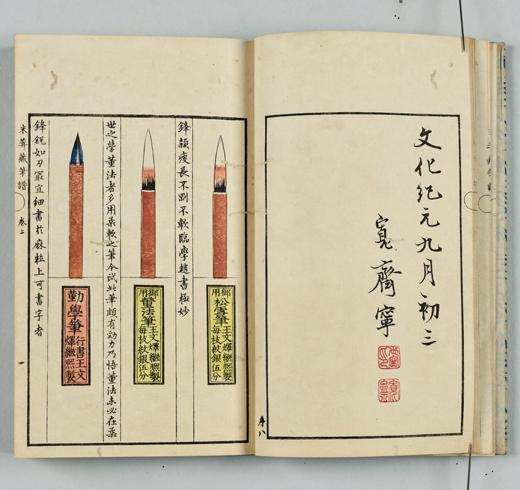 文化紀元九月初三
寬齋寧
序八
御用
松雪筆
王文燁繼熙製
每枝紋銀伍分
鋒頴瘦長不剛不軟臨學趙書極妙
御用
董法筆
王文燁繼熙製
每枝紋銀伍分
世之學董法者多用柔軟之筆今試此筆頗有勁力乃悟董法未必在柔
勤學筆
行書王文
燁繼熙製
鋒銳如刃最宜細書於麻粒上可書字者
米葊藏筆譜 卷上